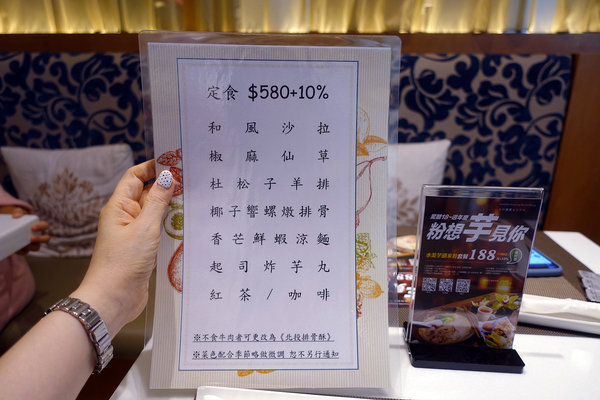 定食 $580+10%
和風沙拉
椒麻仙草
杜松子羊排
椰子響螺燉排骨
香芒鮮蝦涼麵
起司炸芋丸
紅茶/咖啡
※不食牛肉者可更改為《北投排骨酥》
※菜色配合季節略做微調 恕不另行通知
粉想芋見你
188